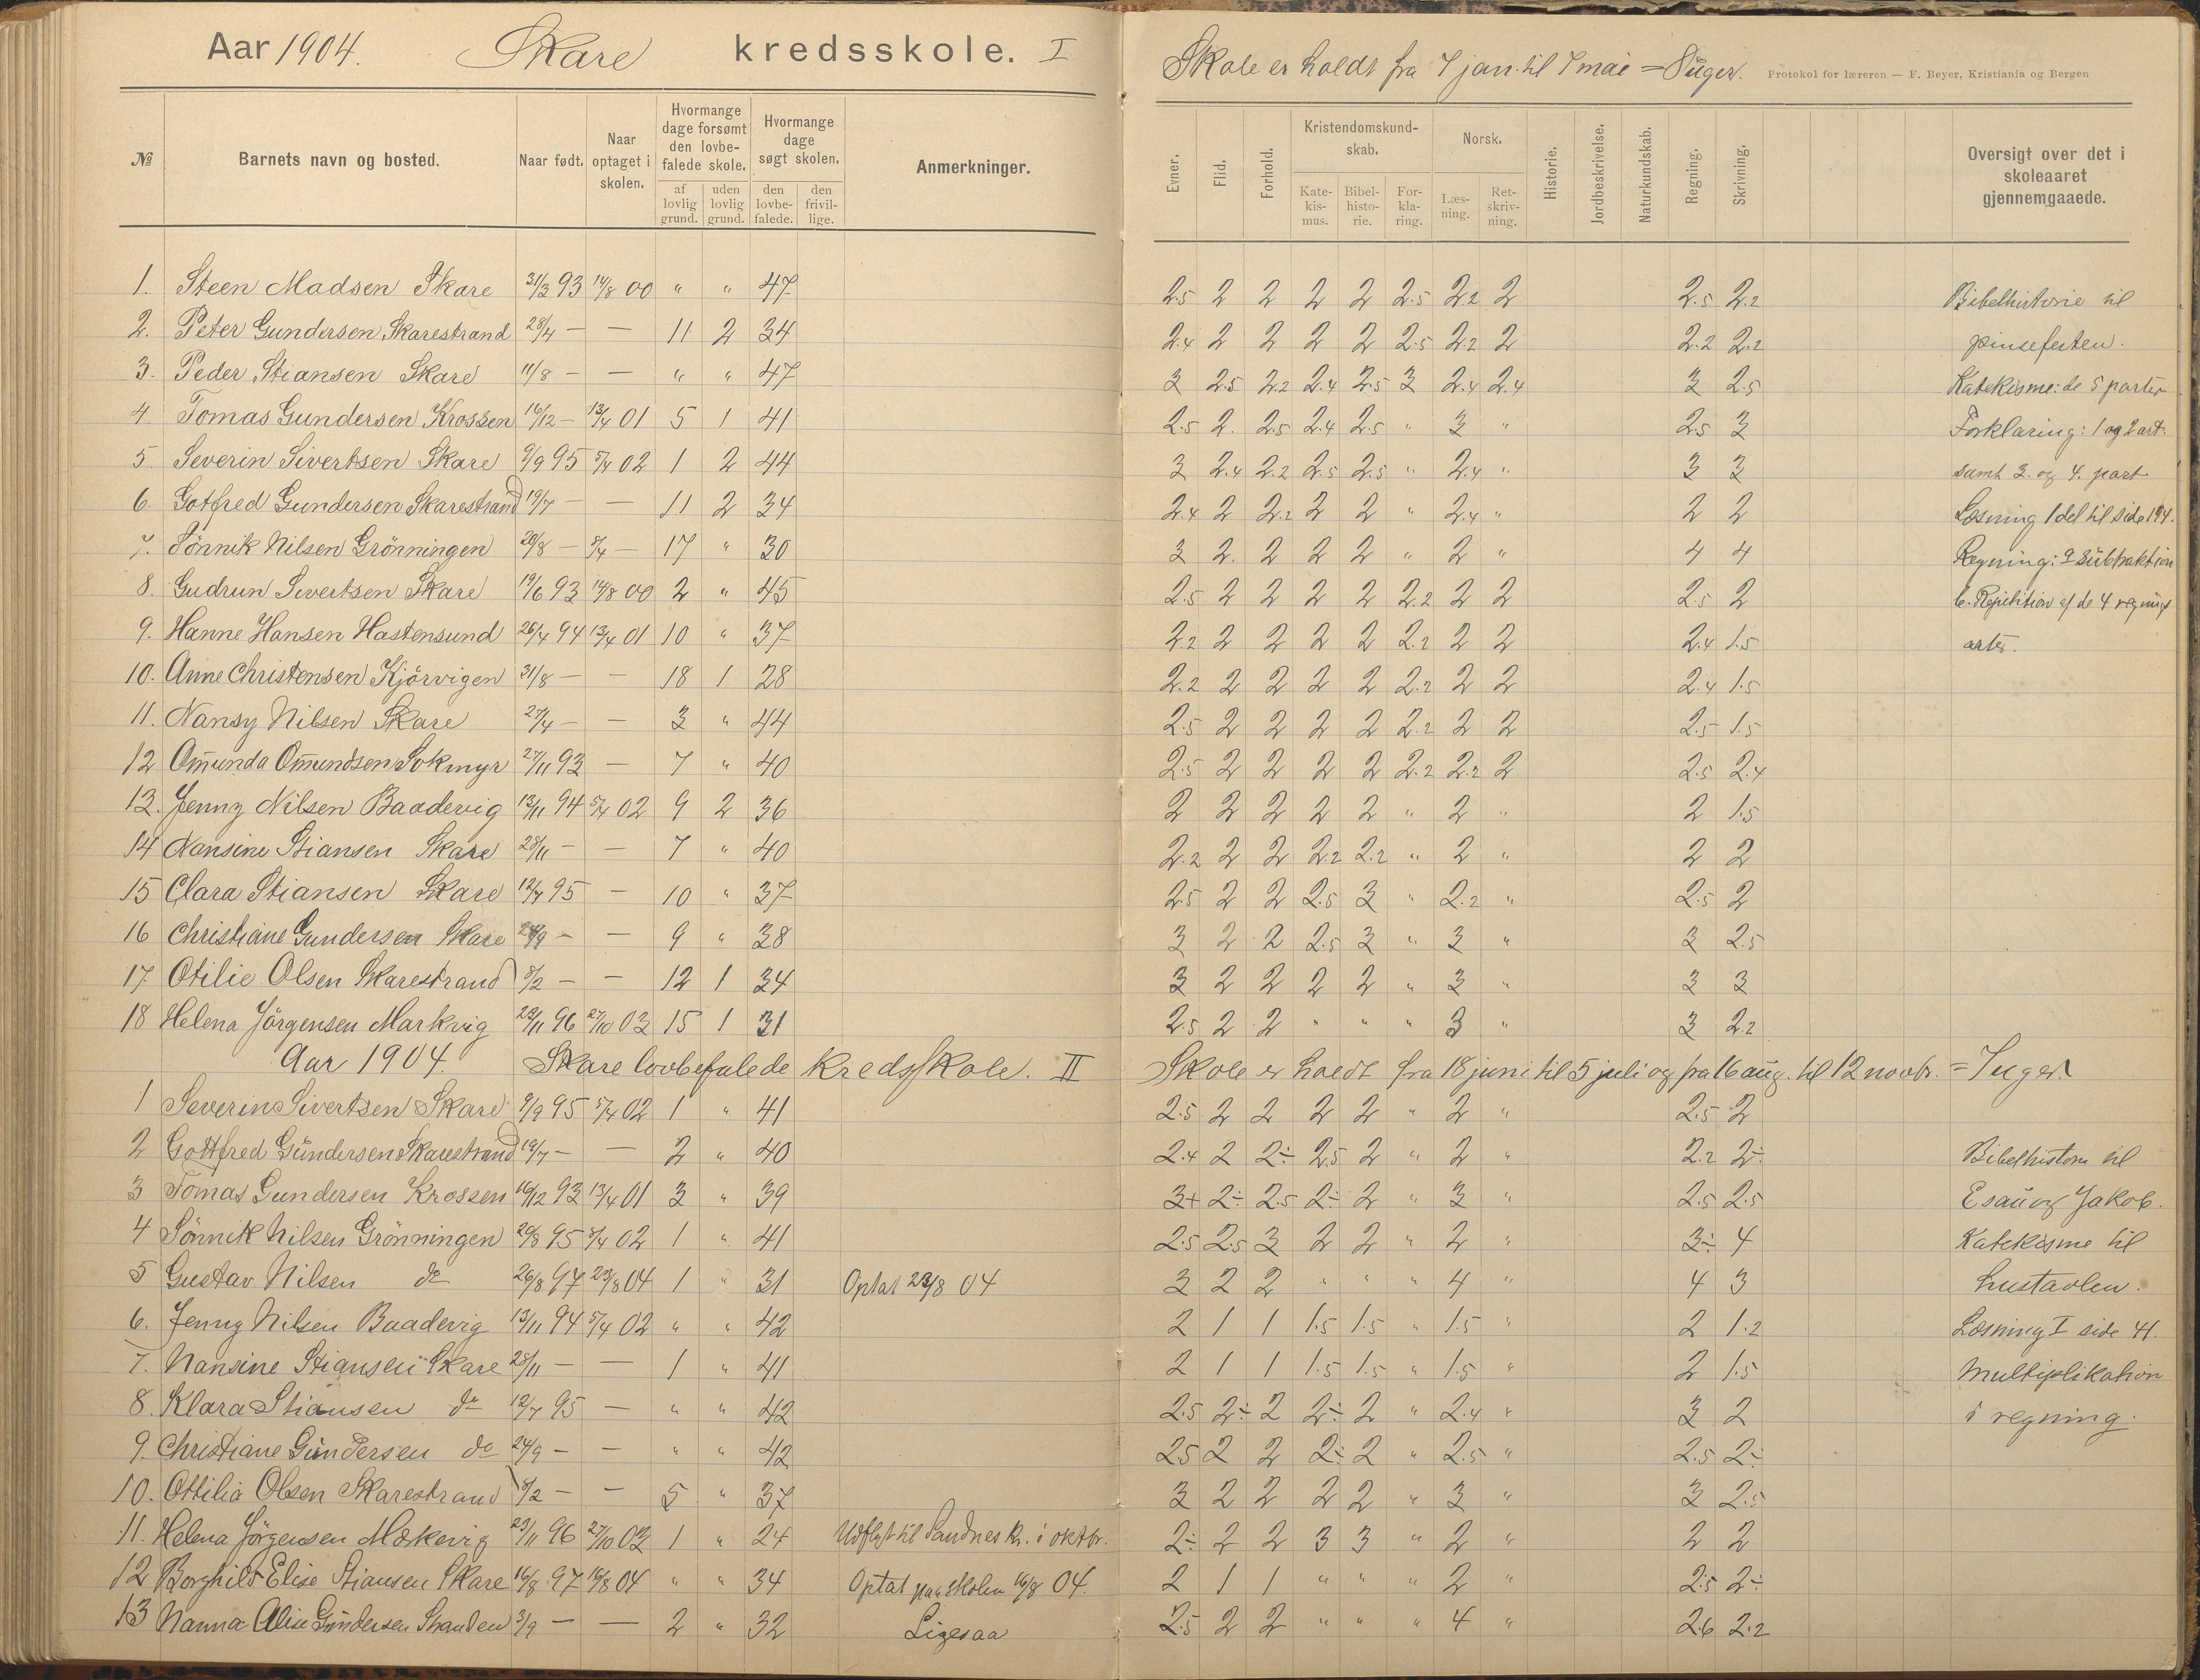 Aar 1904. Skare kredsskole. I
Skole er holdt fra 7 jan. til 7 mai = 8 uger. Protokol for læreren — F. Beyer, Kristiania og Bergen
№ Barnets navn og bosted. Naar født. Naar optaget i skolen. Hvormange dage forsømt den lovbefalede skole. af lovlig grund. uden lovlig grund. Hvormange dage søgt skolen. den lovbefalede. den frivillige. Anmerkninger.
Evner. Flid. Forhold. Kristendomskundskab. Katekismus. Bibelhistorie. Forklaring. Norsk. Læsning. Retskrivning. Historie. Jordbeskrivelse. Naturkundskab. Regning. Skrivning. Oversigt over det i skoleaaret gjennemgaaede.
1. Steen Madsen Skare 31/3 93 14/8 00 " " 47 2.5 2 2 2 2 2.5 2.2 2 2.5 2.2 Bibelhistorie til
2. Peter Gundersen Skarestrand 28/4 — — 11 2 34 2.4 2 2 2 2 2.5 2.2 2 2.2 2.2 pinsefesten.
3. Peder Stiansen Skare 11/8 — — " " 47 3 2.5 2.2 2.4 2.5 3 2.4 2.4 3 2.5 Katekisme: de 5 parter
4. Tomas Gundersen Krossen 16/12 — 13/4 01 5 1 41 2.5 2. 2.5 2.4 2.5 " 3 " 2.5 3 Forklaring: 1 og 2 art.
5. Severin Sivertsen Skare 9/9 95 5/4 02 1 2 44 3 2.4 2.2 2.5 2.5 " 2.4 " 3 3 samt 3. og 4. part
6. Gotfred Gundersen Skarestrand 19/7 — — 11 2 34 2.4 2 2.2 2 2 " 2.4 " 2 2 Læsning 1 del til side 194.
7. Sönnik Nilsen Grönningen 20/8 — 5/4 — 17 " 30 3 2. 2 2 2 " 2 " 4 4 Regning: a subtraktion
8. Gudrun Sivertsen Skare 19/6 93 14/8 00 2 " 45 2.5 2 2 2 2 2.2 2 2 2.5 2 b. Repetition af de 4 regnings
9. Hanne Hansen Hastensund 26/4 94 13/4 01 10 " 37 2.2 2 2 2 2 2.2 2 2 2.4 1.5 arter.
10. Anne Christensen Kjörvigen 31/8 — — 18 1 28 2.2 2 2 2 2 2.2 2 2 2.4 1.5
11. Nansy Nilsen Skare 27/4 — — 3 " 44 2.5 2 2 2 2 2.2 2 2 2.5 1.5
12 Omunda Omundsen Sokmyr 27/11 93 — 7 " 40 2.5 2 2 2 2 2.2 2.2 2 2.5 2.4
13. Jenny Nilsen Baadevig 13/11 94 5/4 02 9 2 36 2 2 2 2 2 " 2 " 2 1.5
14 Nansine Stiansen Skare 28/11 — — 7 " 40 2.2 2 2 2.2 2.2 " 2 " 2 2
15 Clara Stiansen Skare 12/7 95 — 10 " 37 2.5 2 2 2.5 3 " 2.2 " 2.5 2
16 Christiane Gundersen Skare 24/9 — — 9 " 38 3 2 2 2.5 3 " 3 " 3 2.5
17 Otilie Olsen Skarestrand 5/2 — — 12 1 34 3 2 2 2 2 " 3 " 3 3
18 Helena Jörgensen Markvig 23/11 96 27/10 03 15 1 31 2.5 2 2 " " " 3 " 3 2.2
Aar 1904. Skare lovbefalede kredsskole. II Skole er holdt fra 18 juni til 5 juli og fra 16 aug. til 12 novbr. = 7 uger.
1 Severin Sivertsen Skare 9/9 95 5/4 02 1 " 41 2.5 2 2 2 2 " 2 " 2.5 2
2 Gottfred Gundersen Skarestrand 19/7 — — 2 " 40 2.4 2 2÷ 2.5 2 " 2 " 2.2 2÷ Bibelhistorie til
3 Tomas Gundersen Krossen 16/12 93 13/4 01 3 " 39 3+ 2÷ 2.5 2÷ 2 " 3 " 2.5 2.5 Esau og Jakob.
4 Sönnik Nilsen Grönningen 20/8 95 5/4 02 1 " 41 2.5 2.5 3 2 2 " 2 " 3÷ 4 Katekisme til
5 Gustav Nilsen do 26/8 97 23/8 04 1 " 31 Optat 23/8 04 3 2 2 " " " 4 " 4 3 hustavlen.
6. Jenny Nilsen Baadevig 13/11 94 5/4 02 " " 42 2 1 1 1.5 1.5 " 1.5 " 2 1.2 Læsning I side 41.
7. Nansine Stiansen Skare 28/11 — — 1 " 41 2 1 1 1.5 1.5 " 1.5 " 2 1.5 Multiplikation
8. Klara Stiansen do 12/7 95 — " " 42 2.5 2÷ 2 2÷ 2 " 2.4 " 3 2 i regning.
9. Christiane Gundersen do 24/9 — — " " 42 2.5 2 2 2÷ 2 " 2.5 " 2.5 2÷
10. Ottilia Olsen Skarestrand 5/2 — — 5 " 37 3 2 2 2 2 " 3 " 3 2.5
11. Helena Jörgensen Markevig 23/11 96 27/10 03 1 " 24 Udflyt til Sandnes kr. i oktbr. 2÷ 2 2 3 3 " 2 " 2 2
12 Borghild Elise Stiansen Skare 16/8 97 16/8 04 " " 34 Optat paa skolen 16/8 04. 2 1 1 " " " 2 " 2.5 2÷
13 Nanna Alise Gundersen Stranden 3/9 — — 2 " 32 Ligesaa 2.5 2 2 " " " 4 " 2.6 2.2